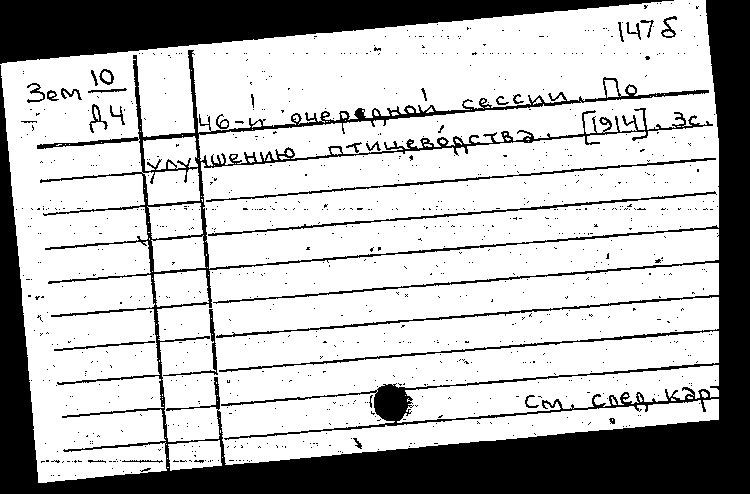 147б
Зем 10
Д4
46-й очередной сессии. По
улучшению птицеводства. [1914]. 3с.
См. след. кар